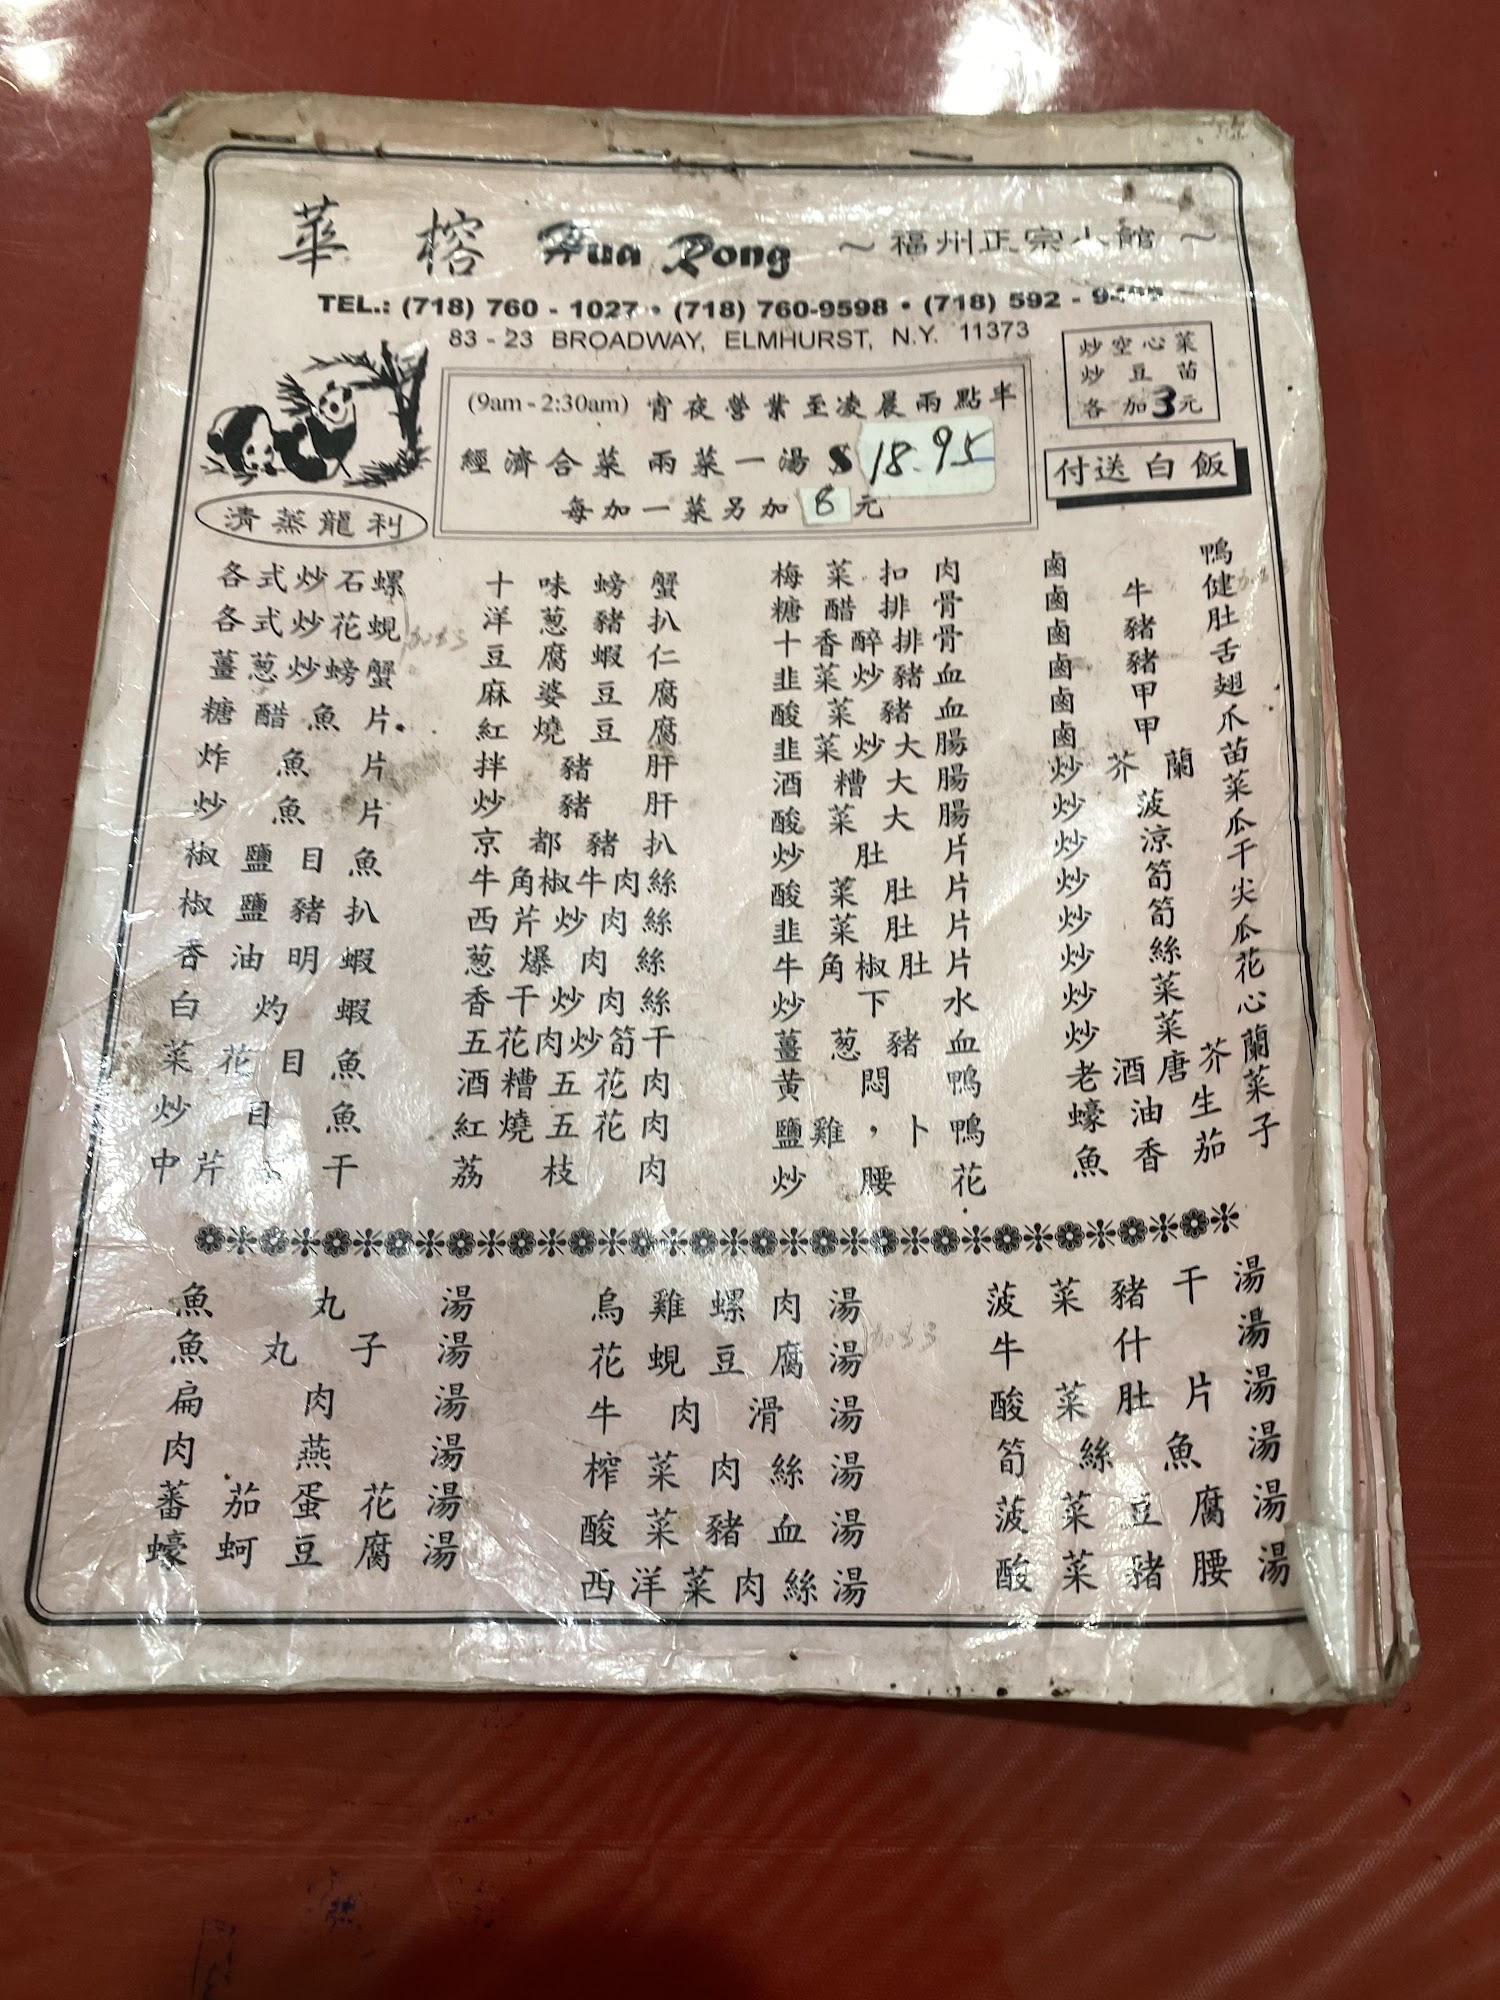 華榕 Hua Rong ～福州正宗小館～
TEL.: (718) 760 - 1027 • (718) 760-9598 • (718) 592 -
83 - 23 BROADWAY, ELMHURST, N.Y. 11373
炒空心菜
炒豆苗
各加3元
(9am - 2:30am) 宵夜營業至凌晨兩點半
經濟合菜 兩菜一湯 $18.95
每加一菜另加8元
付送白飯
清蒸龍利
各式炒石螺
各式炒花蜆
加$3
薑葱炒螃蟹
糖醋魚片
炸魚片
炒魚片
椒鹽目魚
椒鹽豬扒
香油明蝦
白灼蝦
菜花目魚
炒目魚
中芹干
十味螃蟹
洋葱豬扒
豆腐蝦仁
麻婆豆腐
紅燒豆腐
拌豬肝
炒豬肝
京都豬扒
牛角椒牛肉絲
西芹炒肉絲
葱爆肉絲
香干炒肉絲
五花肉炒筍干
酒糟五花肉
紅燒五花肉
荔枝肉
梅菜扣肉
糖醋排骨
十香醉排骨
韭菜炒豬血
酸菜豬血
韭菜炒大腸
酒糟大腸
酸菜大腸
炒肚片
酸菜肚片
韭菜肚片
牛角椒肚片
炒下水
薑葱豬血
黃悶鴨
鹽雞，卜鴨
炒腰花
鹵鴨
鹵牛健
鹵豬肚
鹵豬舌
鹵甲翅
鹵甲爪
炒芥蘭苗
炒菠菜
炒涼瓜
炒筍干
炒筍尖
炒絲瓜
炒菜花
炒菜心
老酒唐芥蘭
蠔油生菜
魚香茄子
魚丸湯
魚丸子湯
扁肉湯
肉燕湯
蕃茄蛋花湯
蠔蚵豆腐湯
烏雞螺肉湯
花蜆豆腐湯
加$3
牛肉滑湯
榨菜肉絲湯
酸菜豬血湯
西洋菜肉絲湯
菠菜豬干湯
牛什湯
酸菜肚片湯
筍絲魚湯
菠菜豆腐湯
酸菜豬腰湯